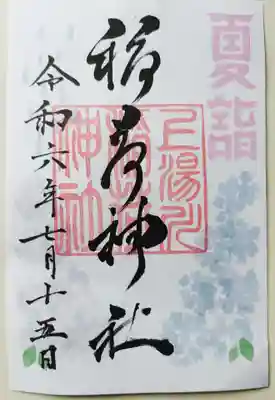 夏詣
稲荷神社
上湯川
稲荷
神社
令和六年七月十五日